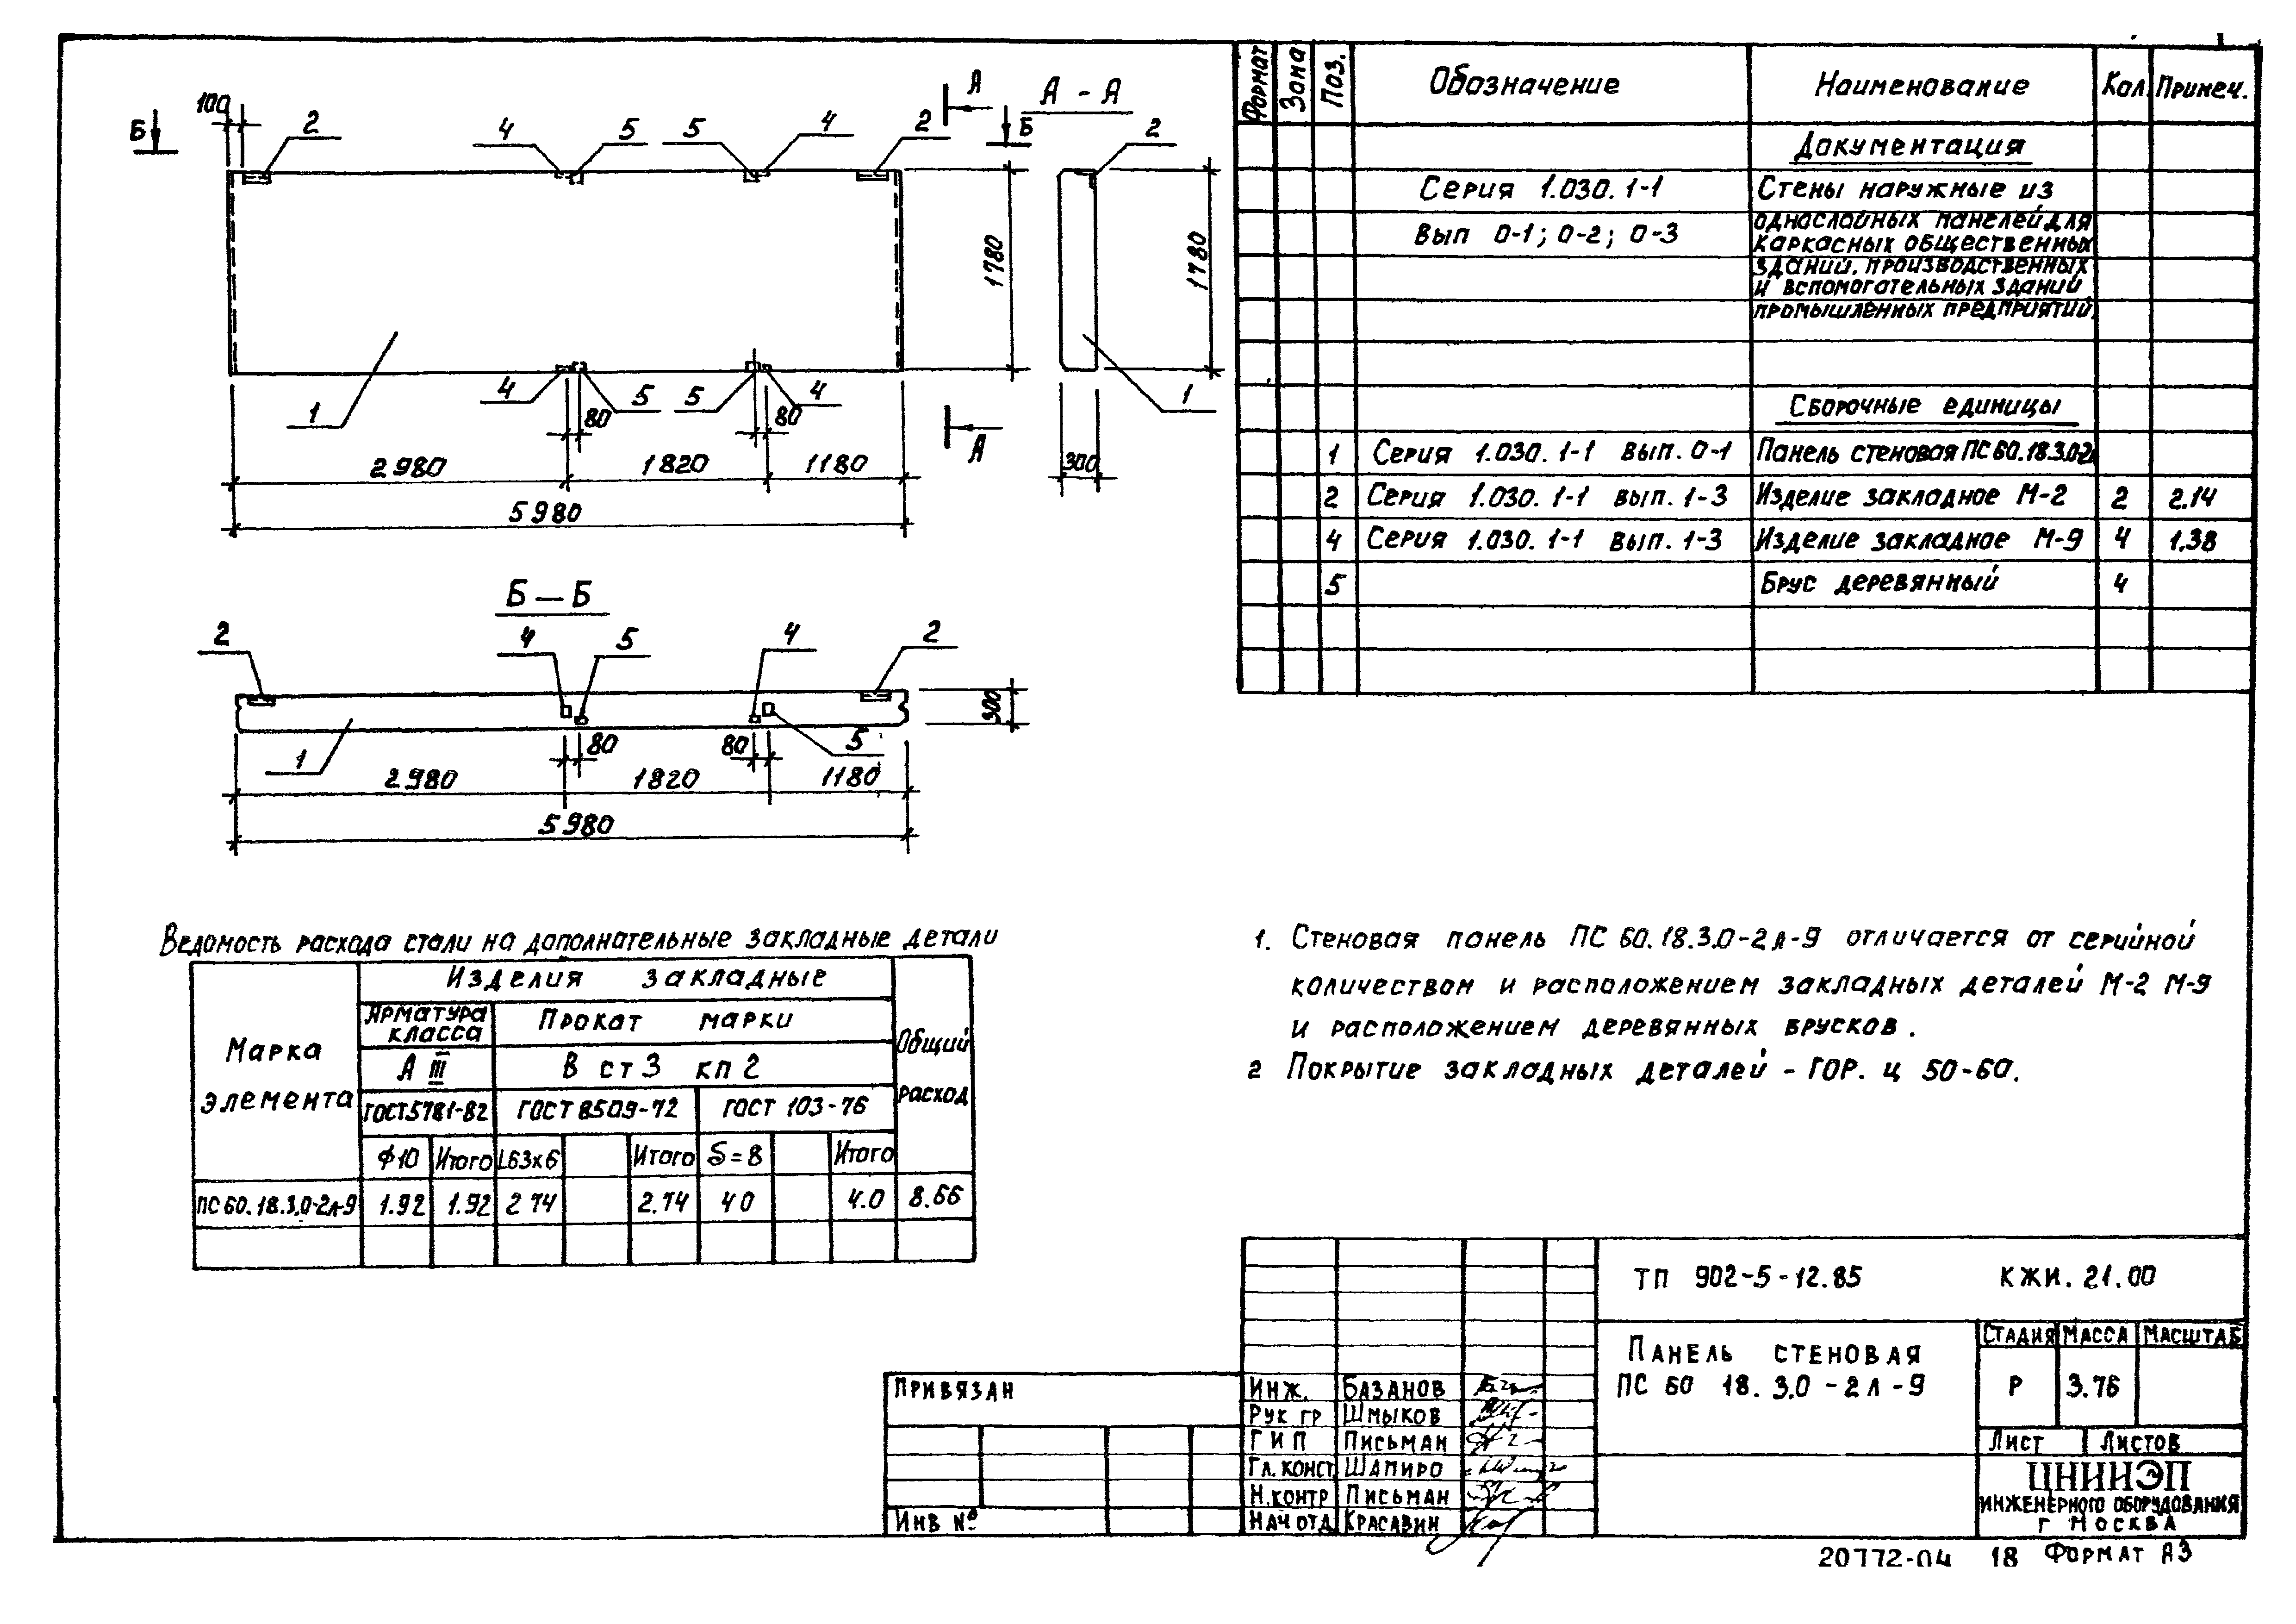 100
Б
2
4
5
5
4
2
А
Б
А - А
2
1780
1780
1
4
5
5
4
80
80
1
А
2980
1820
1180
300
5980
Б — Б
2
4
5
4
2
300
1
80
80
5
2980
1820
1180
5980
Формат
Зона
Поз.
Обозначение
Наименование
Кол.
Примеч.
Документация
Серия 1.030.1-1
Стены наружные из
Вып 0-1; 0-2; 0-3
однаслойных панелей для
каркасных общественных
зданий. производственных
и вспомогательных зданий
промышленных предприятий.
Сборочные единицы
1 Серия 1.030.1-1 вып. 0-1 Панель стеновая ПС 60.18.3.0-2л
2 Серия 1.030.1-1 вып. 1-3 Изделие закладное М-2 2 2.14
4 Серия 1.030.1-1 вып. 1-3 Изделие закладное М-9 4 1.38
5 Брус деревянный 4
Ведомость расхода стали на дополнательные закладные детали
Марка элемента
Изделия закладные
Общий расход
Арматура класса
Прокат марки
А III
В ст 3 кп 2
ГОСТ5781-82
ГОСТ 8509-72
ГОСТ 103-76
Ф10 Итого L63х6 Итого S=8 Итого
ПС 60.18.3,0-2л-9 1.92 1.92 2 74 2.74 4 0 4.0 8.66
1. Стеновая панель ПС 60.18.3.0-2л-9 отличается от серийной
количеством и расположением закладных деталей М-2 М-9
и расположением деревянных брусков.
2 Покрытие закладных деталей - ГОР. ц 50-60.
ТП 902-5-12.85 КЖИ. 21.00
Панель стеновая
ПС 60 18.3.0-2л-9
Стадия Масса Масштаб
Р 3.76
Лист Листов
ЦНИИЭП
инженерного оборудования
г Москва
Привязан
Инв №
Инж. Базанов
Рук гр Шмыков
ГИП Письман
Гл. конст. Шапиро
Н.контр Письман
Нач отд Красавин
20772-04 18 Формат А3